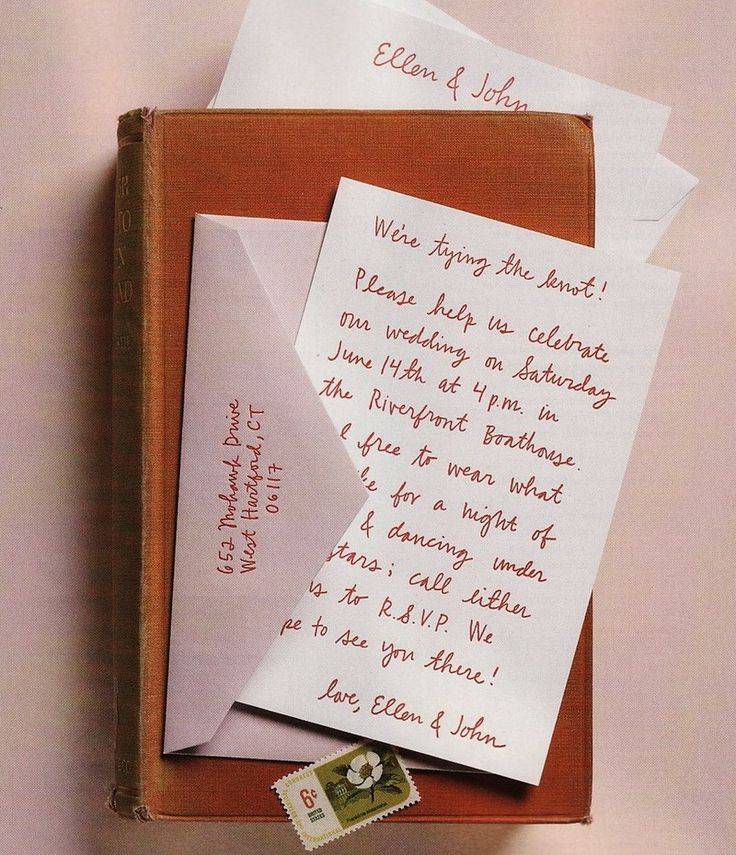 Ellen & John
We're tying the knot!
Please help us celebrate
our wedding on Saturday
June 14th at 4 p.m. in
the Riverfront Boathouse.
free to wear what
for a night of
& dancing under
stars; call either
to R.S.V.P. We
to see you there!
love, Ellen & John
652 Mohawk Drive
West Hartford, CT
06117
6¢
UNITED STATES